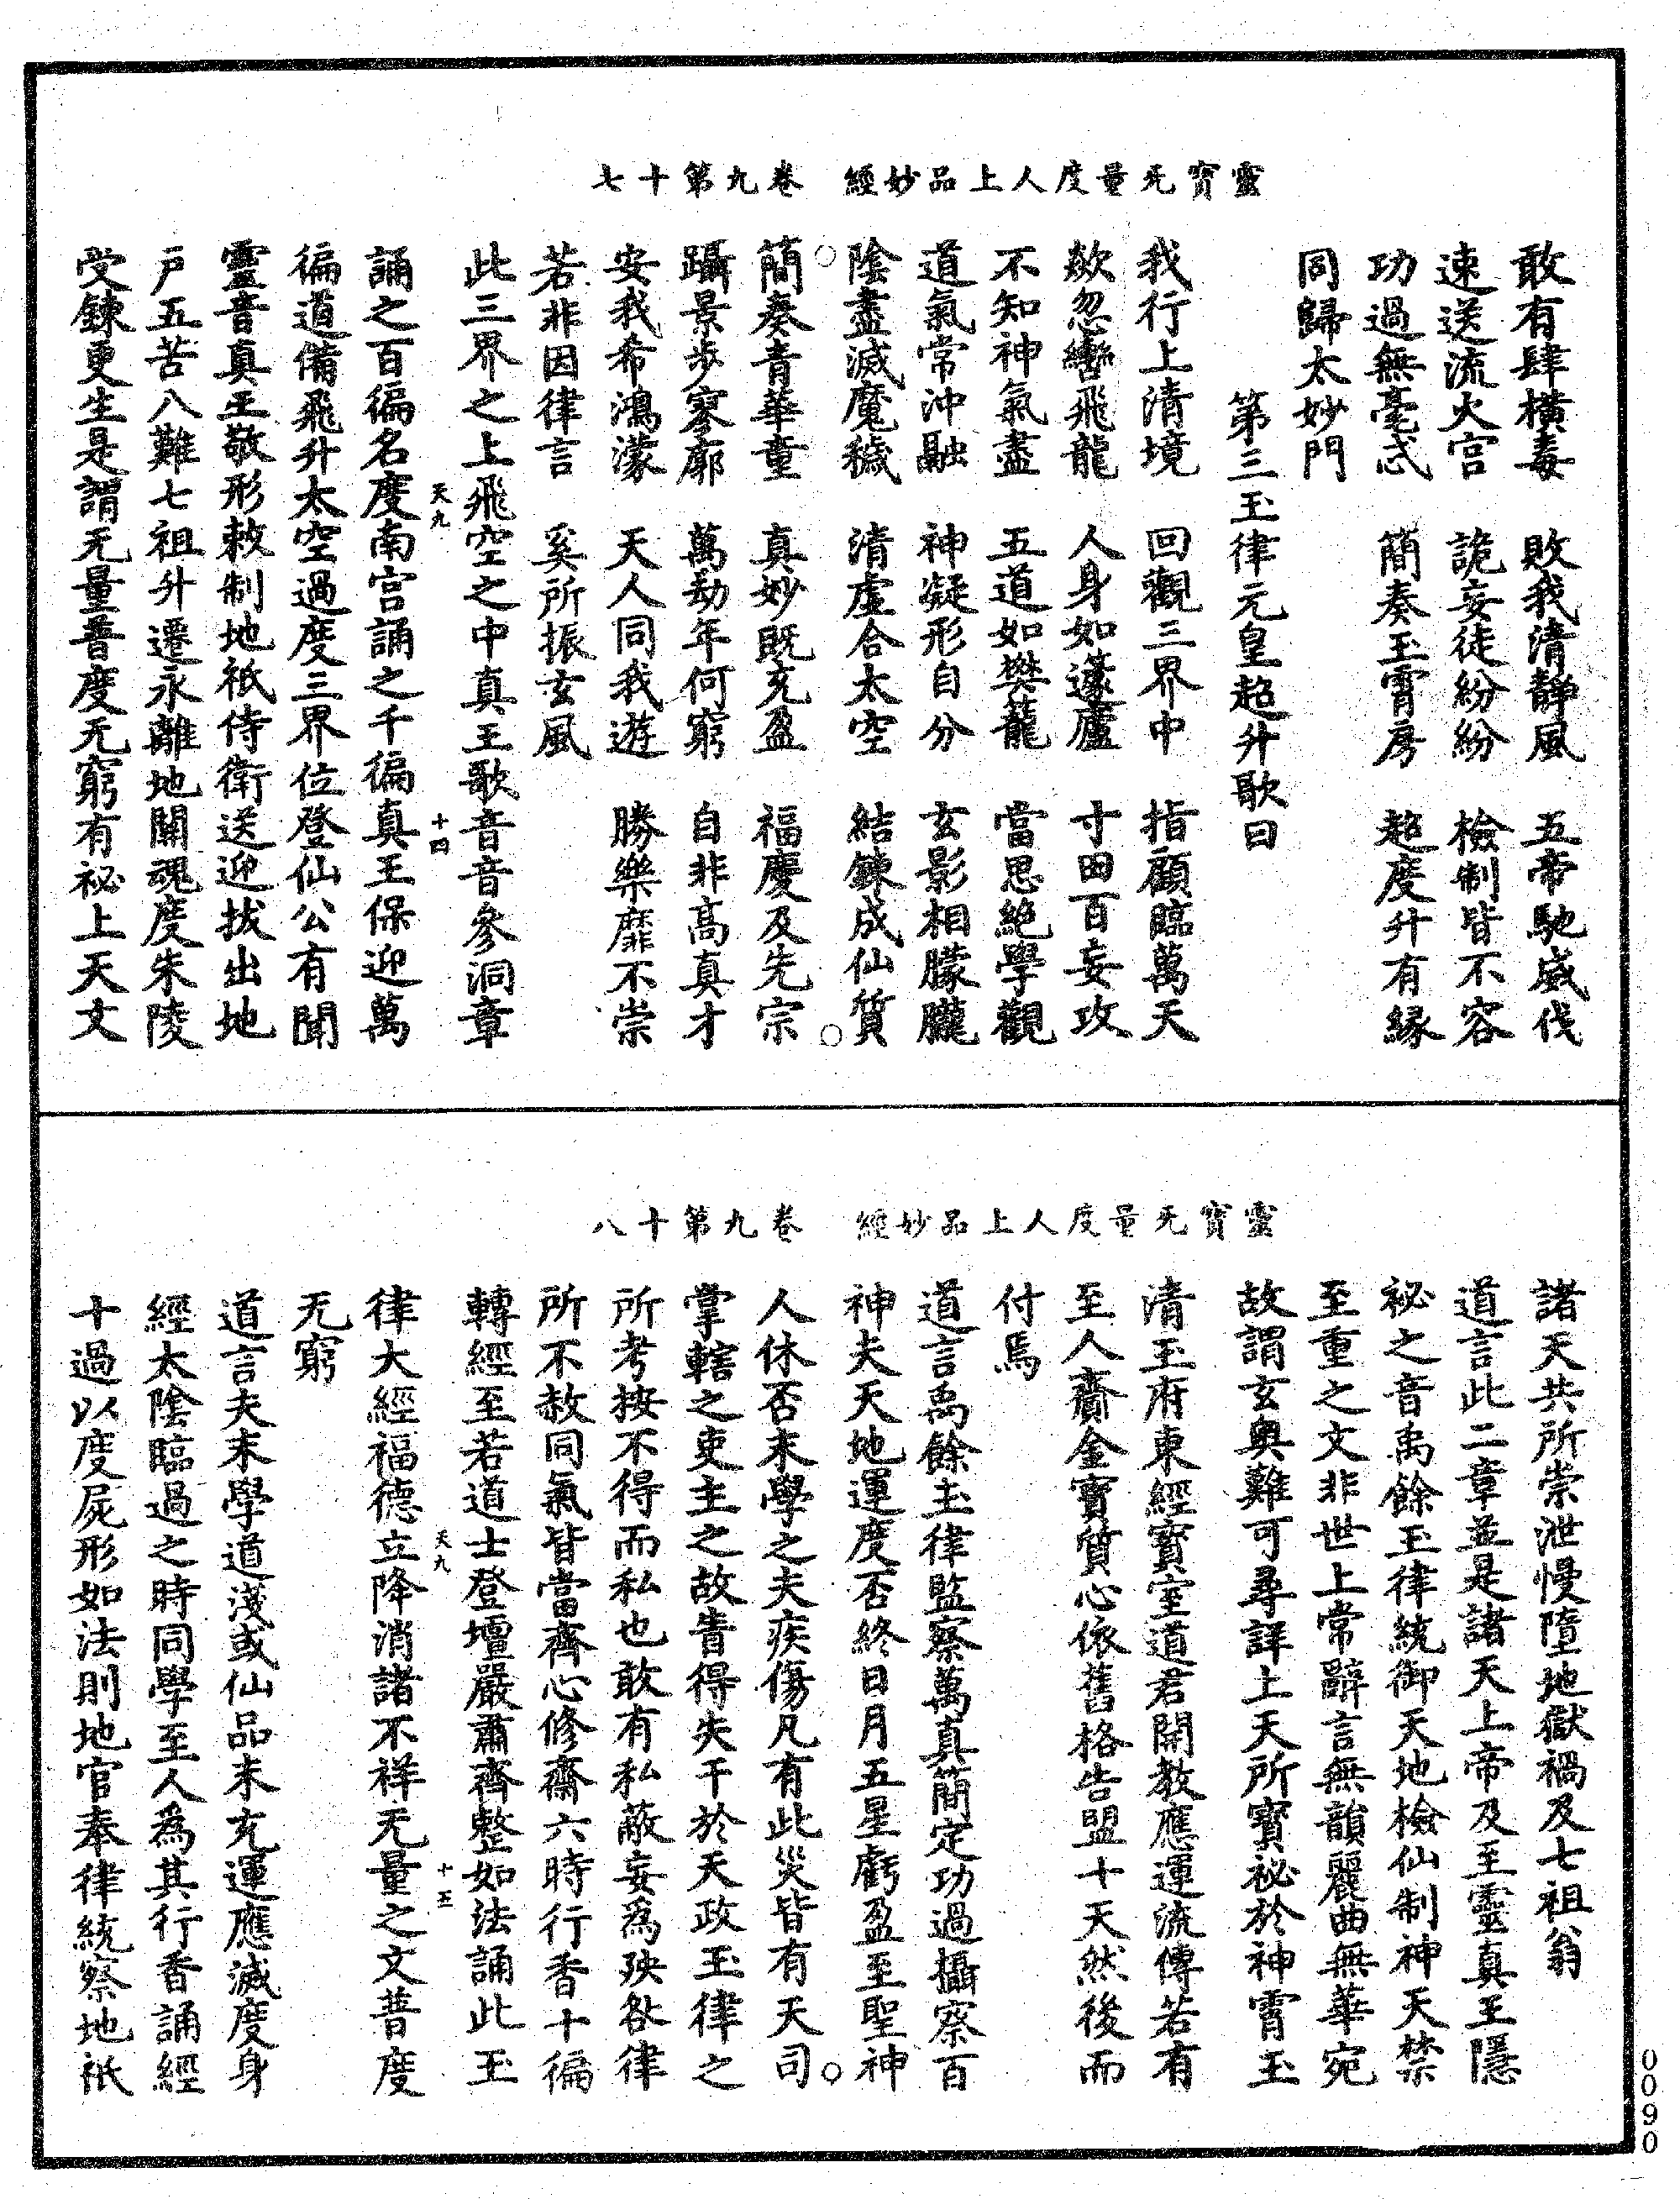 靈寶无量度人上品妙經　卷九第十七
敢有肆橫毒　敗我清靜風　五帝馳威伐
速送流火宮　詭妄徒紛紛　檢制皆不容
功過無毫忒　簡奏玉霄房　超度升有緣
同歸太妙門
第三玉律元皇超升歌曰
我行上清境　回觀三界中　指顧臨萬天
欻忽轡飛龍　人身如蘧廬　寸田百妄攻
不知神氣盡　五道如樊籠　當思絕學觀
道氣常沖融　神凝形自分　玄影相朦朧
陰盡滅魔穢　清虛合太空　結鍊成仙質
簡奏青華童　真妙既充盈　福慶及先宗
躡景步寥廓　萬劫年何窮　自非高真才
安我希鴻濛　天人同我遊　勝樂靡不崇
若非因律言　奚所振玄風
此三界之上飛空之中真王歌音音參洞章
誦之百徧名度南宮誦之千徧真王保迎萬
天九　十四
徧道備飛升太空過度三界位登仙公有聞
靈音真王敬形敕制地祇侍衛送迎拔出地
戶五苦八難七祖升遷永離地關魂度朱陵
受鍊更生是謂无量普度无窮有祕上天文
靈寶无量度人上品妙經　卷九第十八
諸天共所崇泄慢墮地獄禍及七祖翁
道言此二章並是諸天上帝及至靈真王隱
祕之音禹餘玉律統御天地檢仙制神天禁
至重之文非世上常辭言無韻麗曲無華宛
故謂玄奧難可尋詳上天所寶祕於神霄玉
清玉府東經寶室道君開教應運流傳若有
至人齎金寶質心依舊格告盟十天然後而
付焉
道言禹餘玉律監察萬真簡定功過攝察百
神夫天地運度否終日月五星虧盈至聖神
人休否末學之夫疾傷凡有此災皆有天司
掌轄之吏主之故眚得失干於天政玉律之
所考按不得而私也敢有私蔽妄為殃咎律
所不赦同氣皆當齊心修齋六時行香十徧
轉經至若道士登壇嚴肅齊整如法誦此玉
律大經福德立降消諸不祥无量之文普度
天九　十五
无窮
道言夫末學道淺或仙品未充運應滅度身
經太陰臨過之時同學至人為其行香誦經
十過以度屍形如法則地官奉律統察地祇
0090